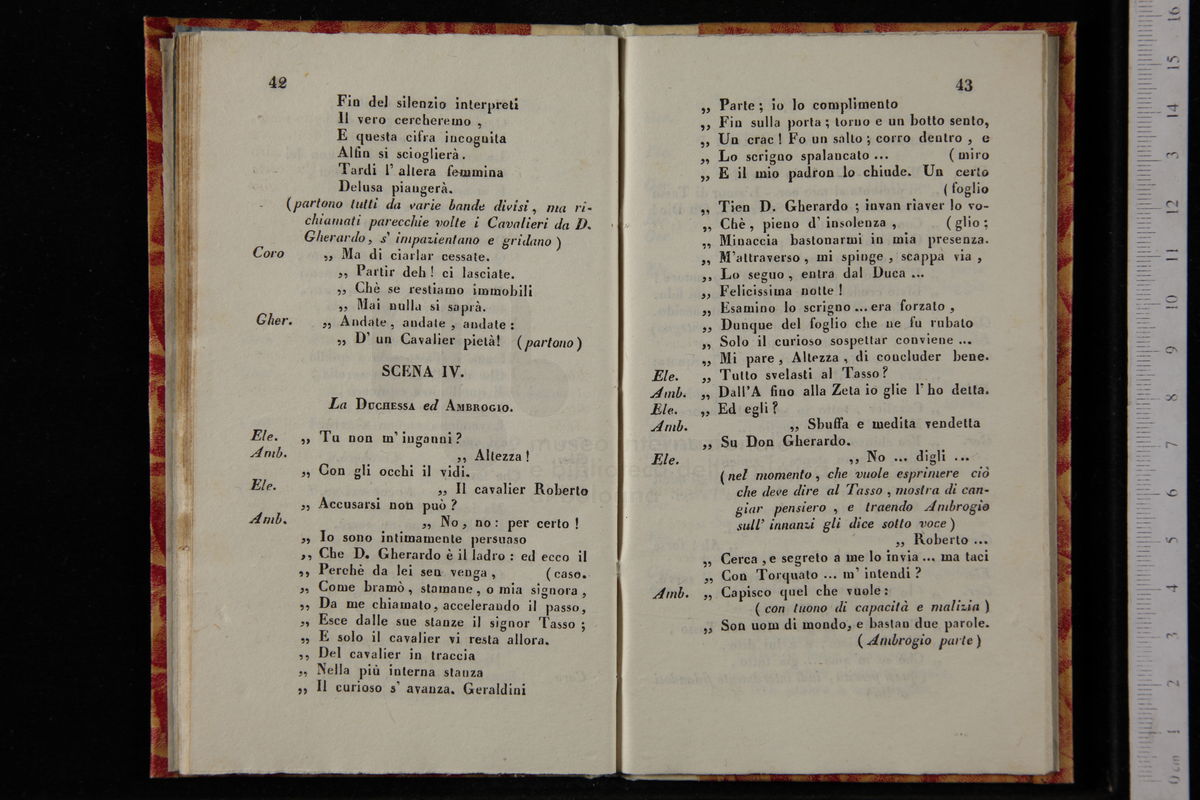 42
Fin del silenzio interpreti
Il vero cercheremo ,
E questa cifra incognita
Alfin si scioglierà.
Tardi l' altera femmina
Delusa piangerà.
(partono tutti da varie bande divisi, ma ri-
chiamati parecchie volte i Cavalieri da D.
Gherardo, s' impazientano e gridano )
Coro ,, Ma di ciarlar cessate.
,, Partir deh ! ci lasciate.
,, Chè se restiamo immobili
,, Mai nulla si saprà.
Gher. ,, Andate , andate , andate :
,, D' un Cavalier pietà! (partono)
SCENA IV.
La DUCHESSA ed AMBROGIO.
Ele. ,, Tu non m' inganni ?
Amb. ,, Altezza !
,, Con gli occhi il vidi.
Ele. ,, Il cavalier Roberto
,, Accusarsi non può ?
Amb. ,, No, no : per certo !
,, Io sono intimamente persuaso
,, Che D. Gherardo è il ladro : ed ecco il
,, Perchè da lei sen venga , (caso.
,, Come bramò, stamane, o mia signora ,
,, Da me chiamato, accelerando il passo,
,, Esce dalle sue stanze il signor Tasso ;
,, E solo il cavalier vi resta allora.
,, Del cavalier in traccia
,, Nella più interna stanza
,, Il curioso s' avanza. Geraldini
43
,, Parte ; io lo complimento
,, Fin sulla porta ; torno e un botto sento,
,, Un crac ! Fo un salto ; corro dentro , e
,, Lo scrigno spalancato ... ( miro
,, E il mio padron lo chiude. Un certo
( foglio
,, Tien D. Gherardo ; invan riaver lo vo-
,, Chè , pieno d' insolenza , ( glio ;
,, Minaccia bastonarmi in mia presenza.
,, M'attraverso , mi spinge , scappa via ,
,, Lo seguo , entra dal Duca ...
,, Felicissima notte !
,, Esamino lo scrigno ... era forzato ,
,, Dunque del foglio che ne fu rubato
,, Solo il curioso sospettar conviene ...
,, Mi pare , Altezza , di concluder bene.
Ele. ,, Tutto svelasti al Tasso ?
Amb. ,, Dall'A fino alla Zeta io glie l' ho detta.
Ele. ,, Ed egli ?
Amb. ,, Sbuffa e medita vendetta
,, Su Don Gherardo.
Ele. ,, No ... digli ...
(nel momento , che vuole esprimere ciò
che deve dire al Tasso , mostra di can-
giar pensiero , e traendo Ambrogio
sull' innanzi gli dice sotto voce )
,, Roberto ...
,, Cerca , e segreto a me lo invia ... ma taci
,, Con Torquato ... m' intendi ?
Amb. ,, Capisco quel che vuole :
( con tuono di capacità e malizia )
,, Son uom di mondo, e bastan due parole.
( Ambrogio parte )